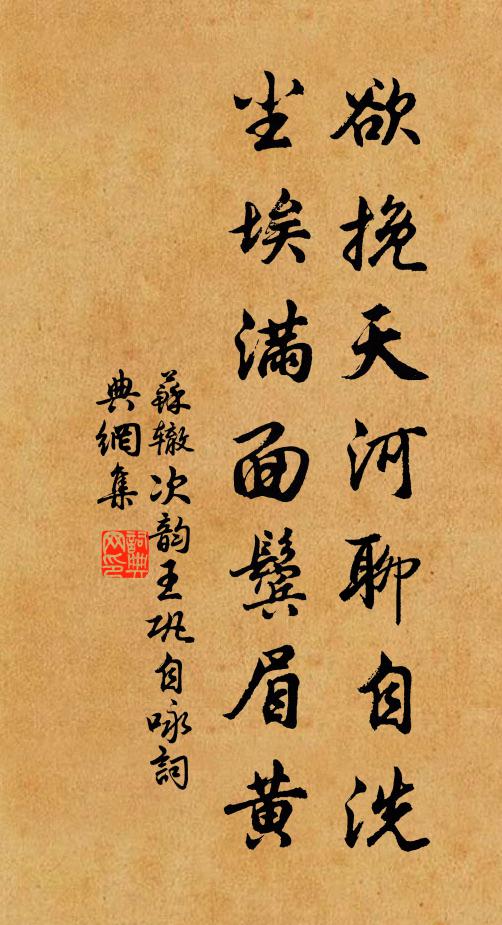 欲挽天河聊自洗
尘埃满面鬓眉黄
苏辙次韵王巩自咏词
典網集
詞典網印